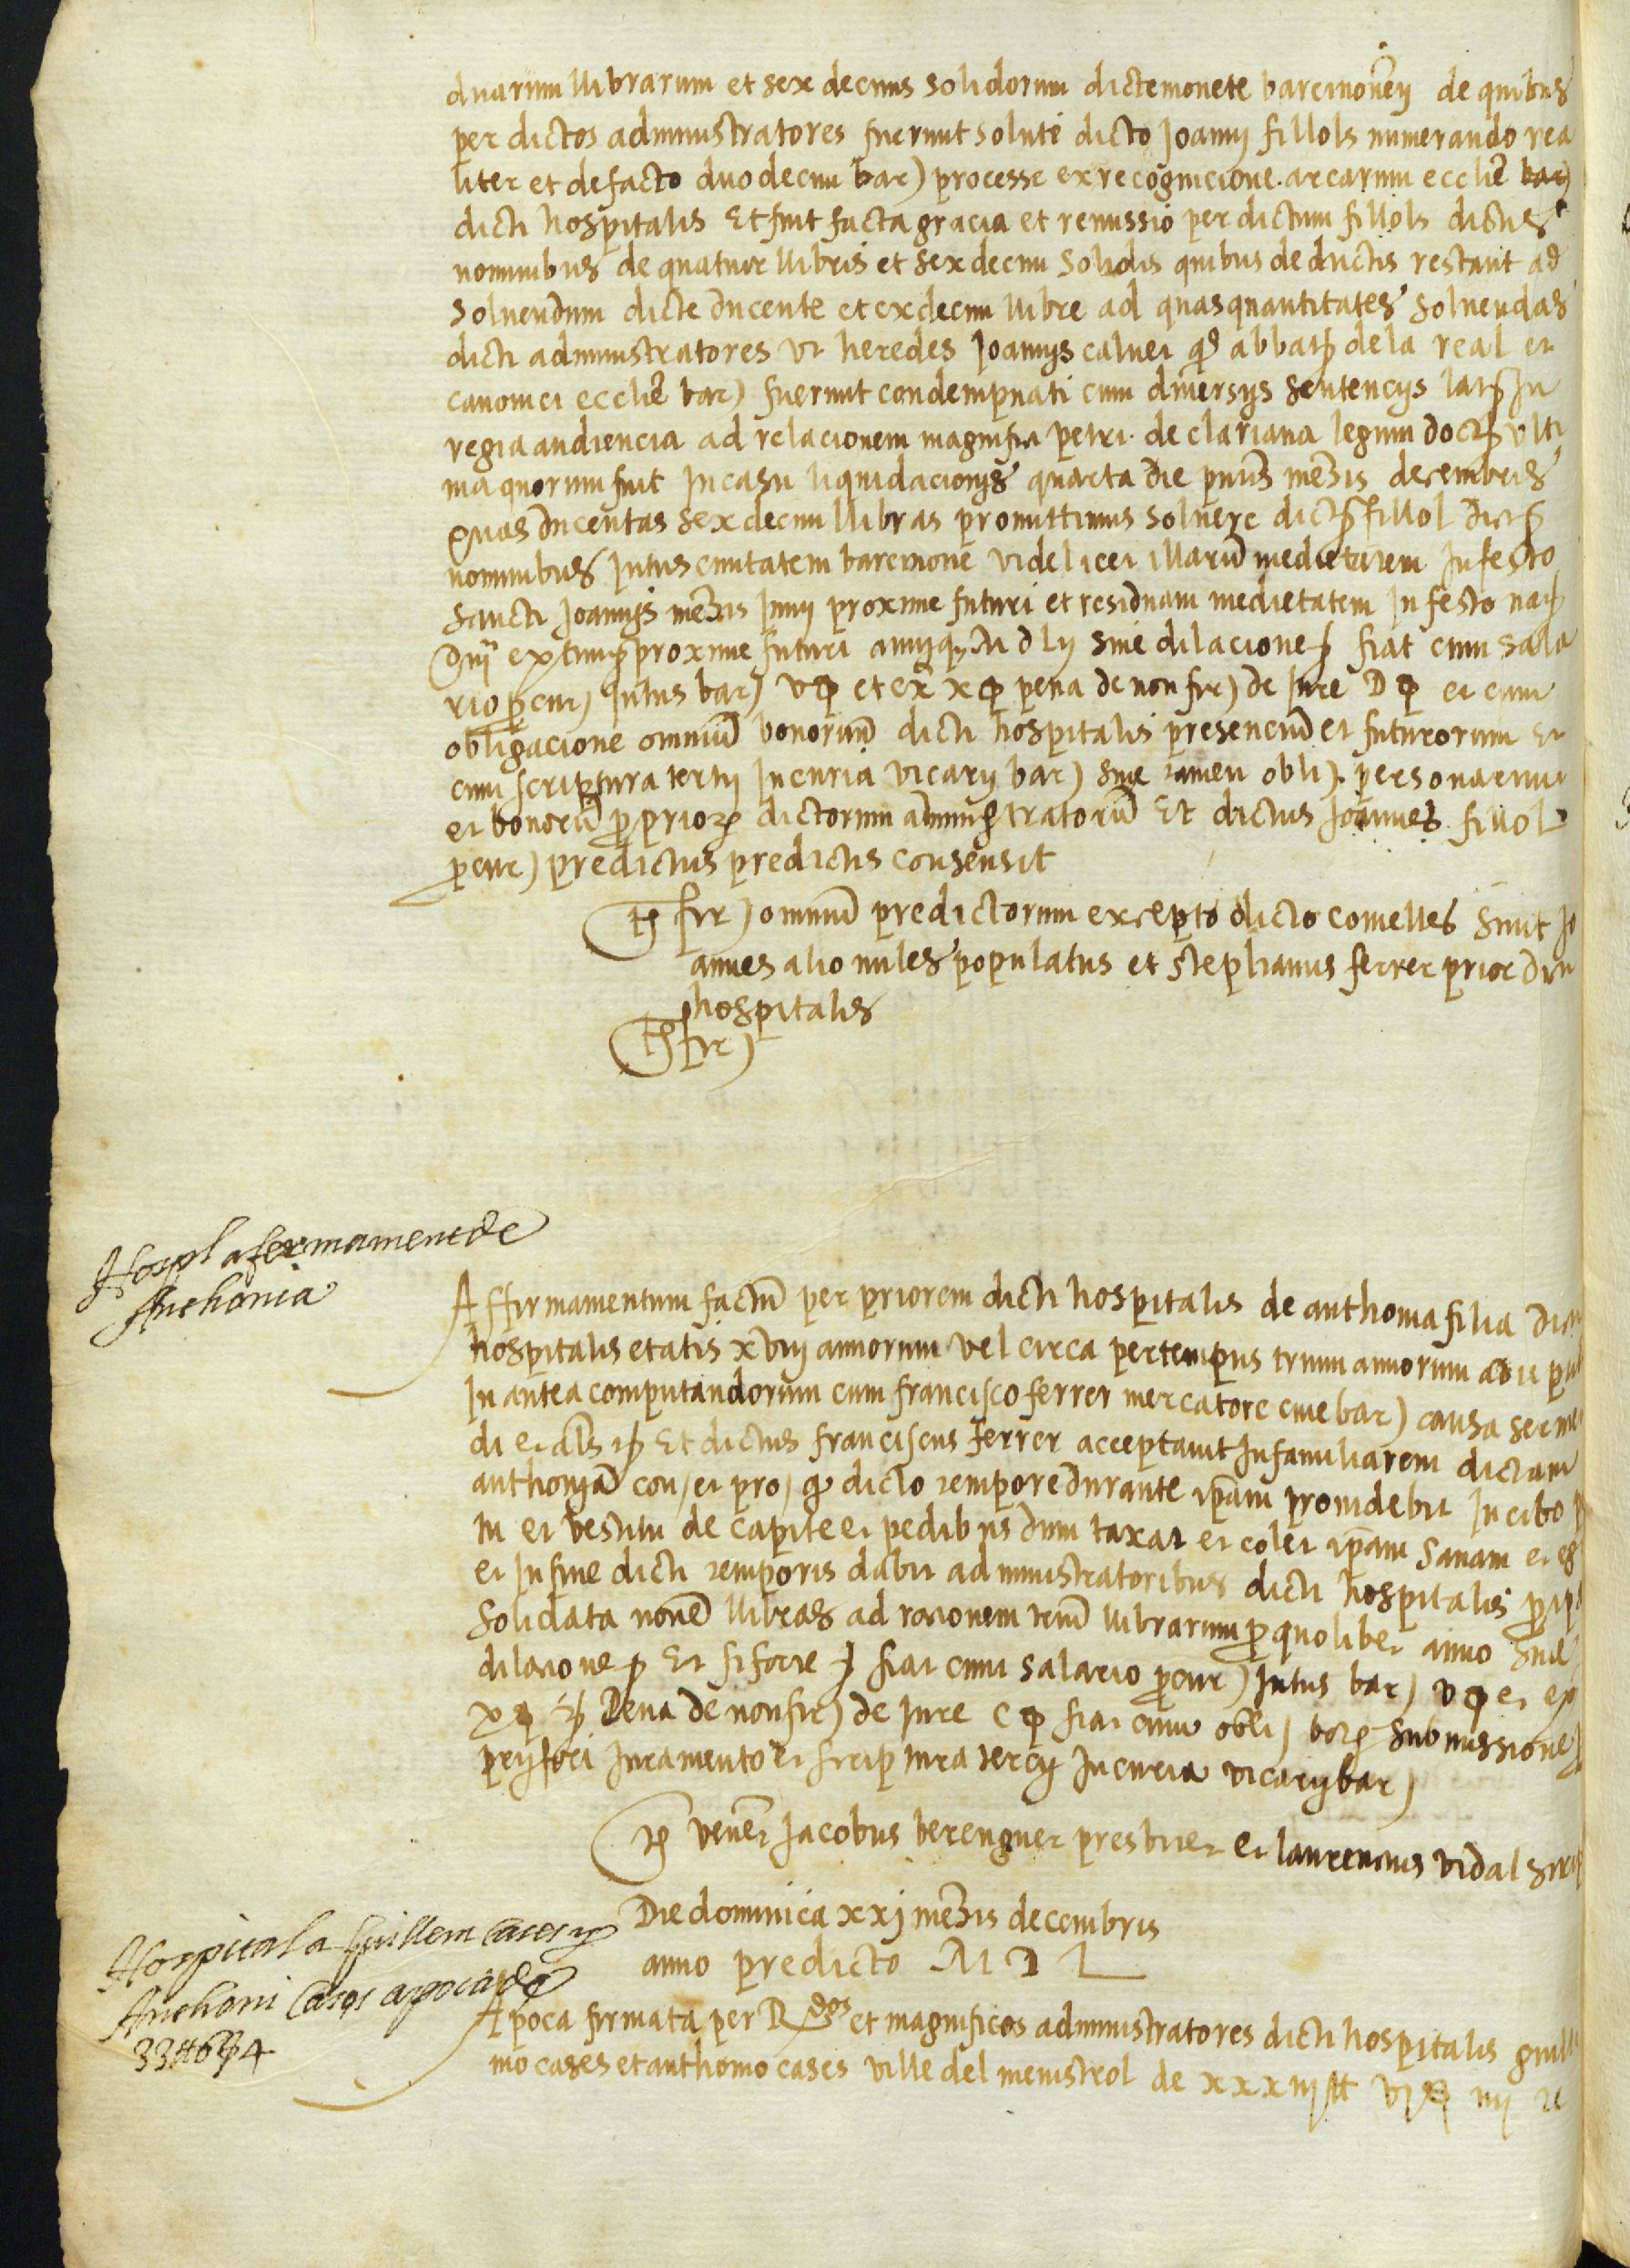 duarum llibrarum et sex decims solidorum dicte monete barcinoneñ de quibus
per dictos administratores fuerunt solute dicto Joanni fillols numerando rea
liter et de facto duodecim bar) processe ex recognicione arcarum ecclie bar)
dicti hospitalis Et fuit facta gracia et remissio per dictum fillols dictis
nominibus de quatuor llibris et sexdecim solidis quibus deductis restant ad
solvendum dicte ducente et exdecim llibre ad quas quantitates solvendas
dicti administratores ut heredes Joannis calvet qd abbatis de la real et
canonici ecclie bar) fuerunt condempnati cum diversis sentencijs latis In
regia audiencia ad relacionem magnifici petri de clariana legum doctoris ulti
ma quorum fuit In casu liquidacionis quarta die pñtis mensis decembris
Quas ducentas sexdecim llibras promittimus solvere dicto fillol dictis
nominibus Intus civitatem barcinone videlicet illarum medietatem In festo
sancti Joannis mensis Junij proxime futuri et residuam medietatem In festo nat
dñi extunc proxime futuri annijq. M d lj sine dilacione fiat cum sala
rio procur) Intus bar) v et ex x pena de non fir) de Jure D et cum
obligacione omnium bonorum dicti hospitalis presencium et futurorum Et
cum scriptura tertij In curia vicarij bar) sine tamen obli) personarum
et bonorum propriorum dictorum administratorum Et dictus Joannes fillol
procur) predictus predictis consensit
ts fir) omnium predictorum excepto dicto comelles sunt Jo
annes alio miles populatus et stephanus ferrer prior dicti
hospitalis
ts fir)
Hospl afermament de
Anthonia
Affirmamentum factum per priorem dicti hospitalis de anthonia filia dicti
hospitalis etatis xviij annorum vel circa per tempus trium annorum ab
In antea computandorum cum francisco ferrer mercatore cive bar) causa
di et als Et dictus franciscus ferrer acceptavit In familiarem dictam
anthoniam con, et pro, dicto tempore durante ipsam providebit In cibo
tu et vestitu de capite et pedibus dum taxat et colet ipsam sanam et
et In fine dicti temporis dabit administratoribus dicti hospitalis pro
solidata novem llibras ad racionem trium llibrarum pro quolibet anno sine
dilacione Et si forte fiat cum salario procur) Intus bar) v et ex
x pena de non fir) de Jure C fiat cum obli) bonorum submissione
prij fori Juramento et scriptura tercij In curia vicarij bar)
ts vener Jacobus berenguer presbiter et laurencius vidal
Die dominica xxj mensis decembris
anno predicto M D L
Hospital a Guillem Cases y
Anthoni Cases apocha de
33 ll 6 s 4
Apoca firmata per Rdos et magnificos administratores dicti hospitalis guill
mo cases et anthonio cases ville del menistrol de xxxiij ll vj s iiij